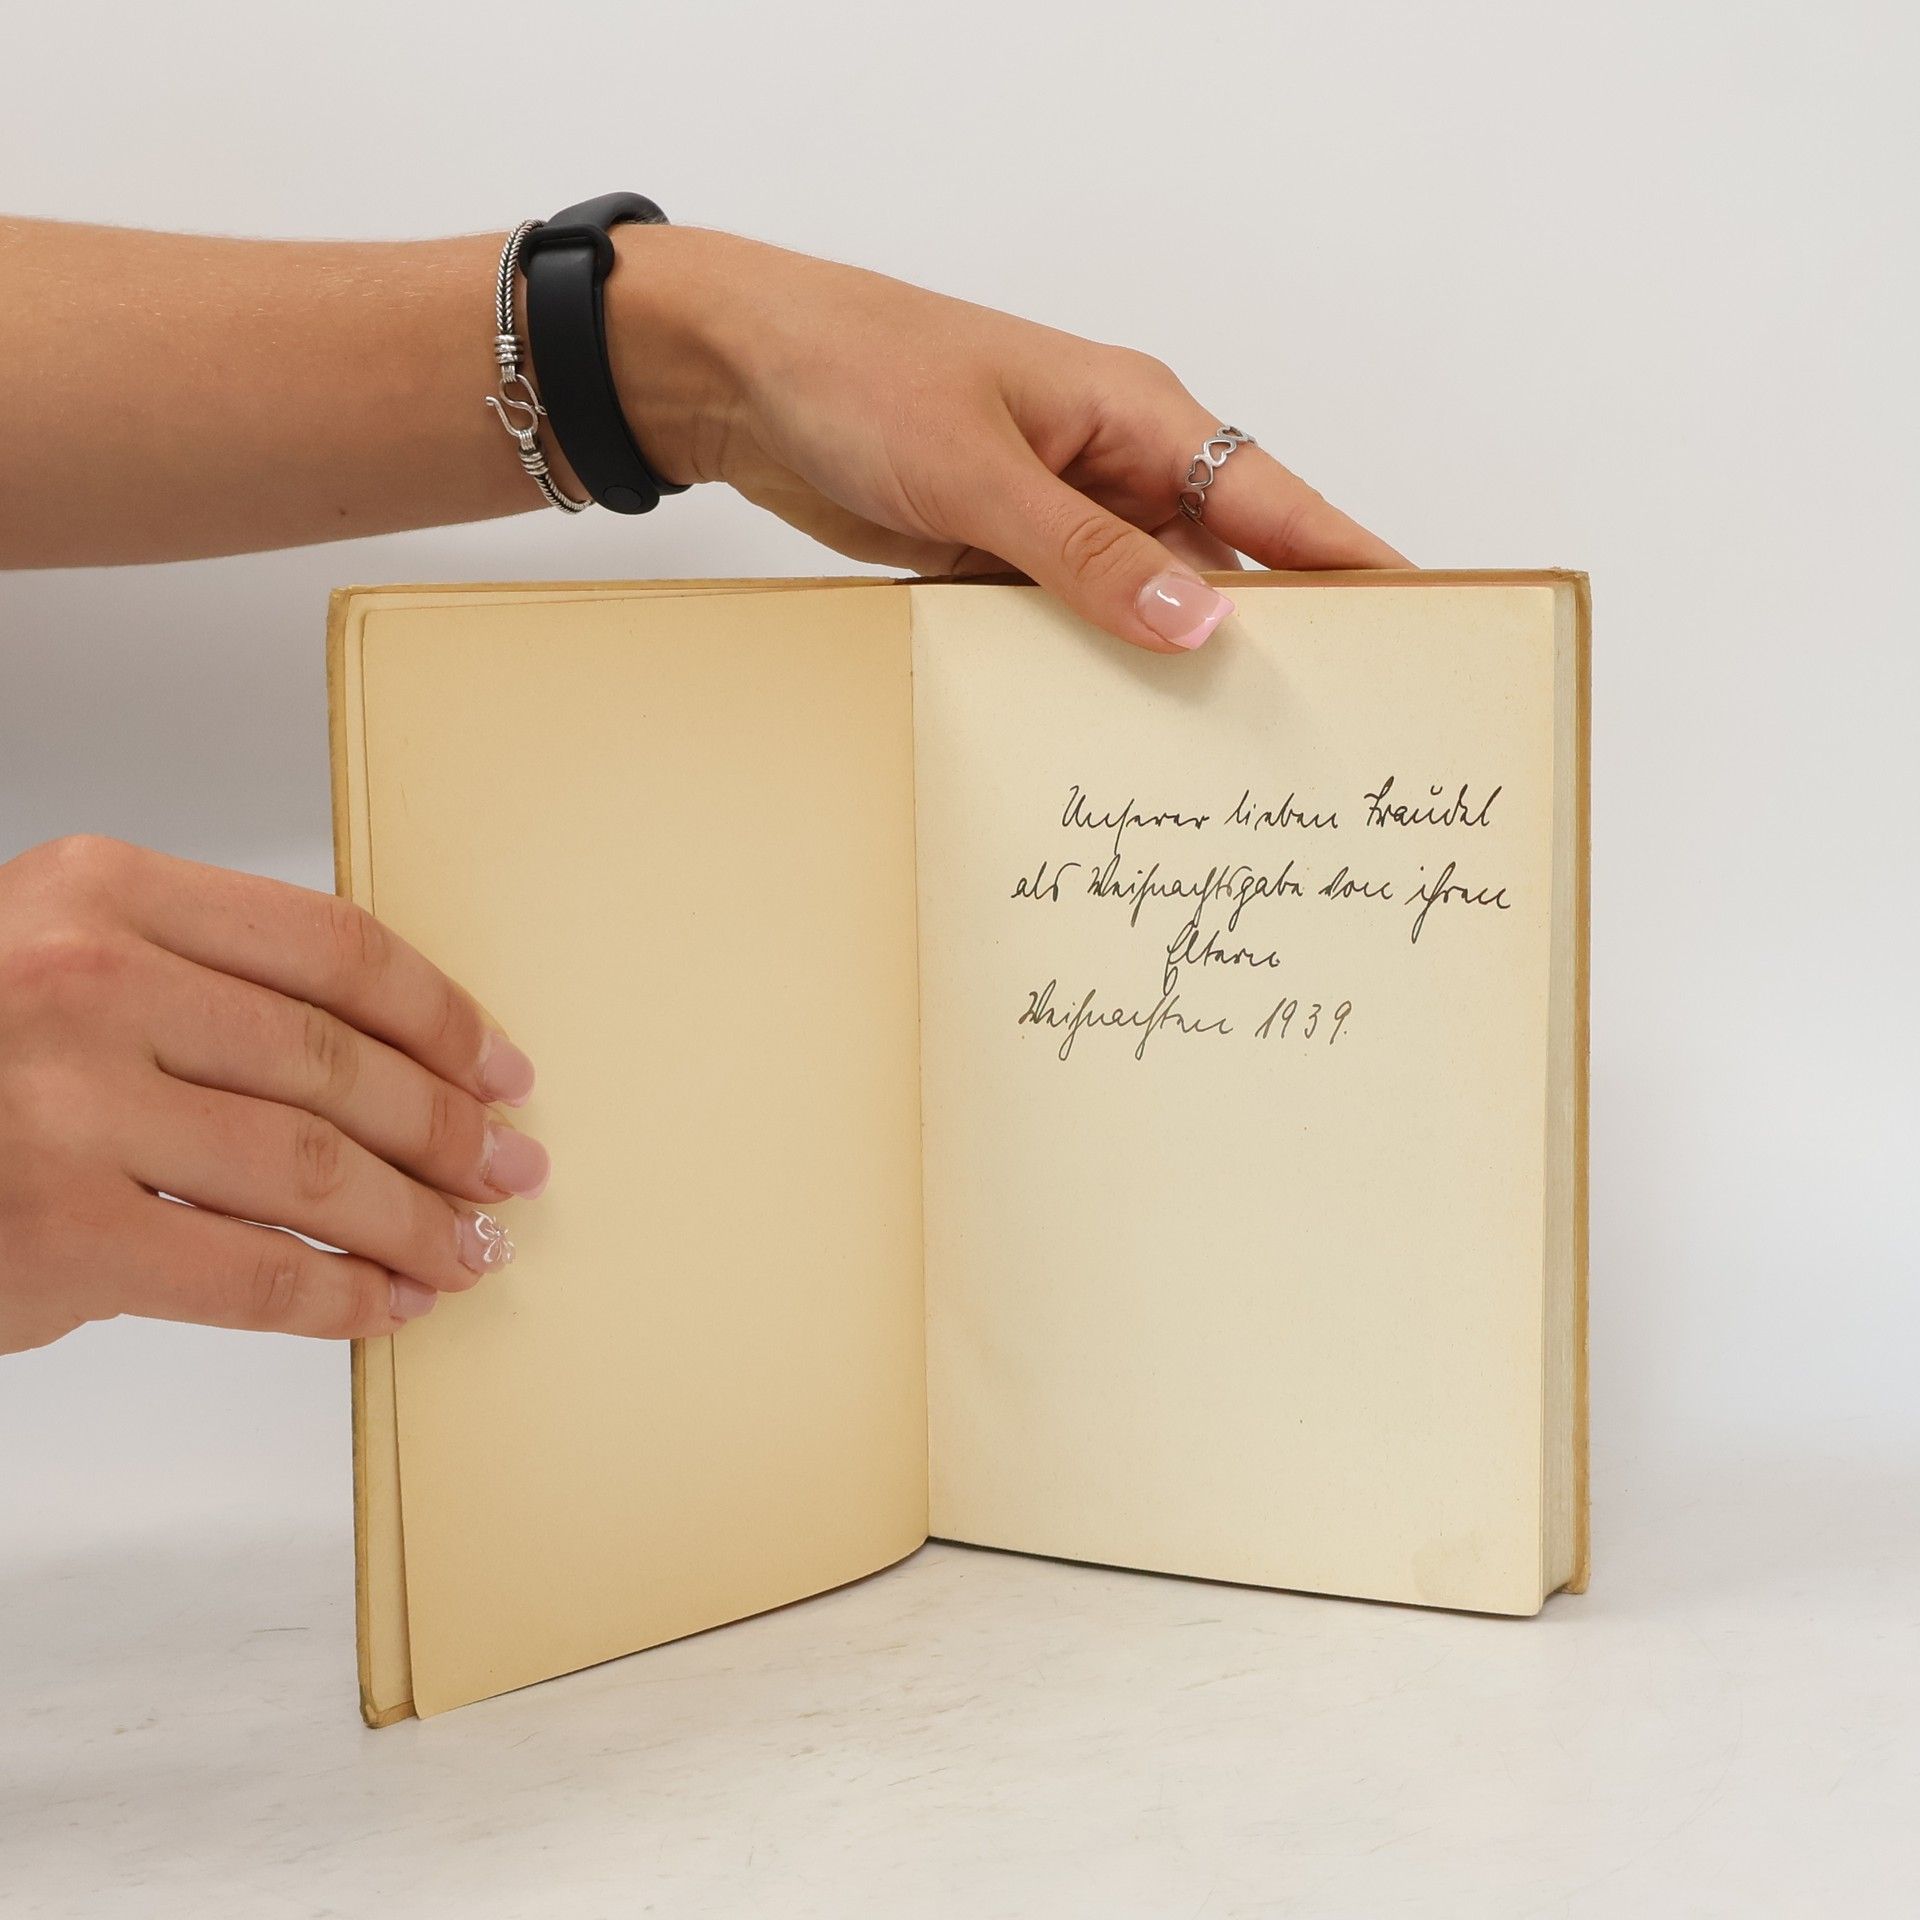 Unserer lieben Traudel
als Weihnachtsgabe von ihren
Eltern.
Weihnachten 1939.